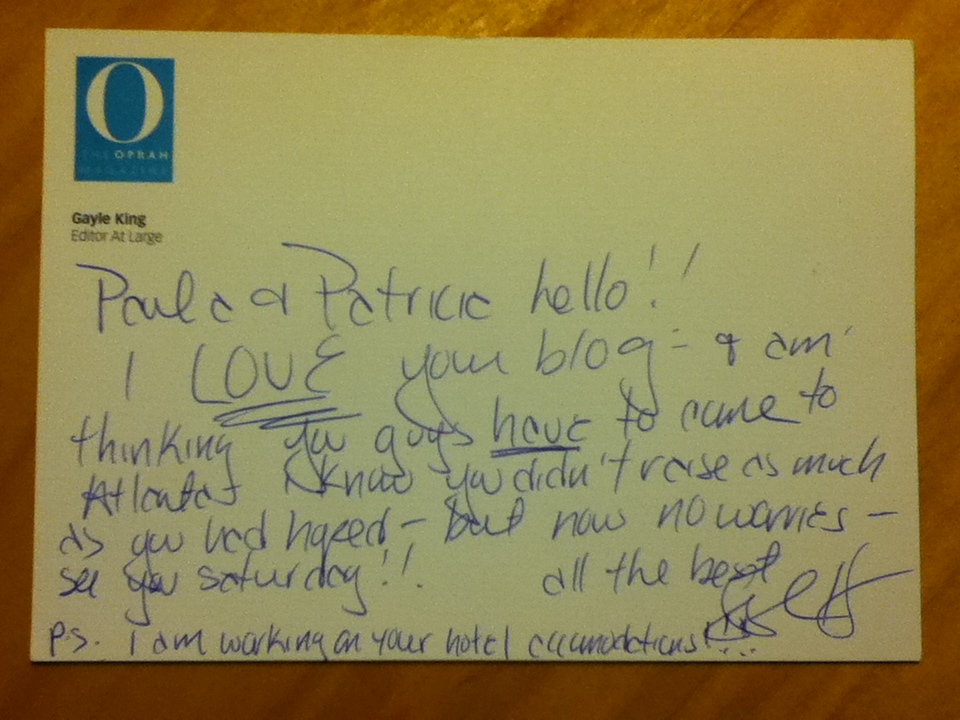 O
THE OPRAH
MAGAZINE
Gayle King
Editor At Large
Paula & Patricia hello!!
I LOVE your blog - & am
thinking you guys have to come to
Atlanta I know you didn't raise as much
as you had hoped - but now no worries -
see you saturday!! all the best
P.S. I am working on your hotel accumodations!...